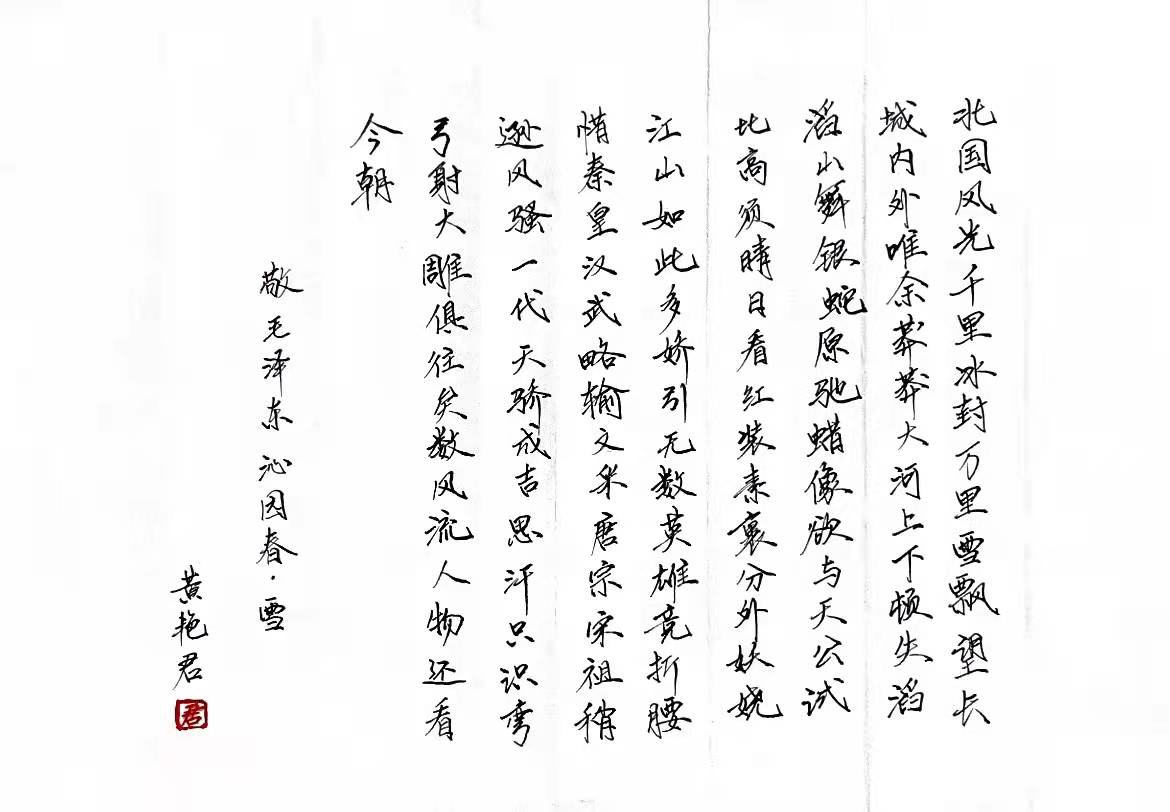 北国风光千里冰封万里雪飘望长
城内外唯余莽莽大河上下顿失滔
滔山舞银蛇原驰蜡像欲与天公试
比高须晴日看红装素裹分外妖娆
江山如此多娇引无数英雄竞折腰
惜秦皇汉武略输文采唐宗宋祖稍
逊风骚一代天骄成吉思汗只识弯
弓射大雕俱往矣数风流人物还看
今朝
敬毛泽东沁园春·雪
黄艳君
君